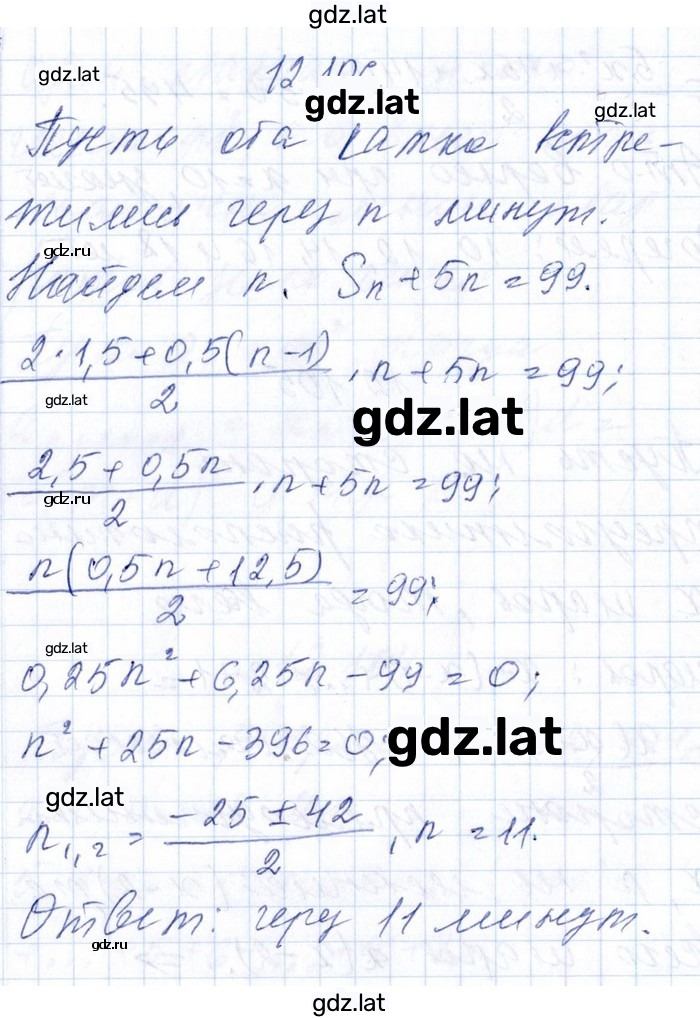 gdz.lat
gdz.lat
12.106
gdz.lat
gdz.lat
Пусть оба катка встре-
тились через n минут.
gdz.ru
Найдем n. Sn + 5n = 99.
(2·1,5+0,5(n-1))/2 · n + 5n = 99;
gdz.lat
gdz.lat
(2,5+0,5n)/2 · n + 5n = 99;
gdz.ru
n(0,5n+12,5)/2 = 99;
gdz.lat
0,25n² + 6,25n - 99 = 0;
n² + 25n - 396 = 0;
gdz.lat
gdz.lat
n1,2 = (-25 ± 42)/2, n = 11.
Ответ: через 11 минут.
gdz.ru
gdz.lat